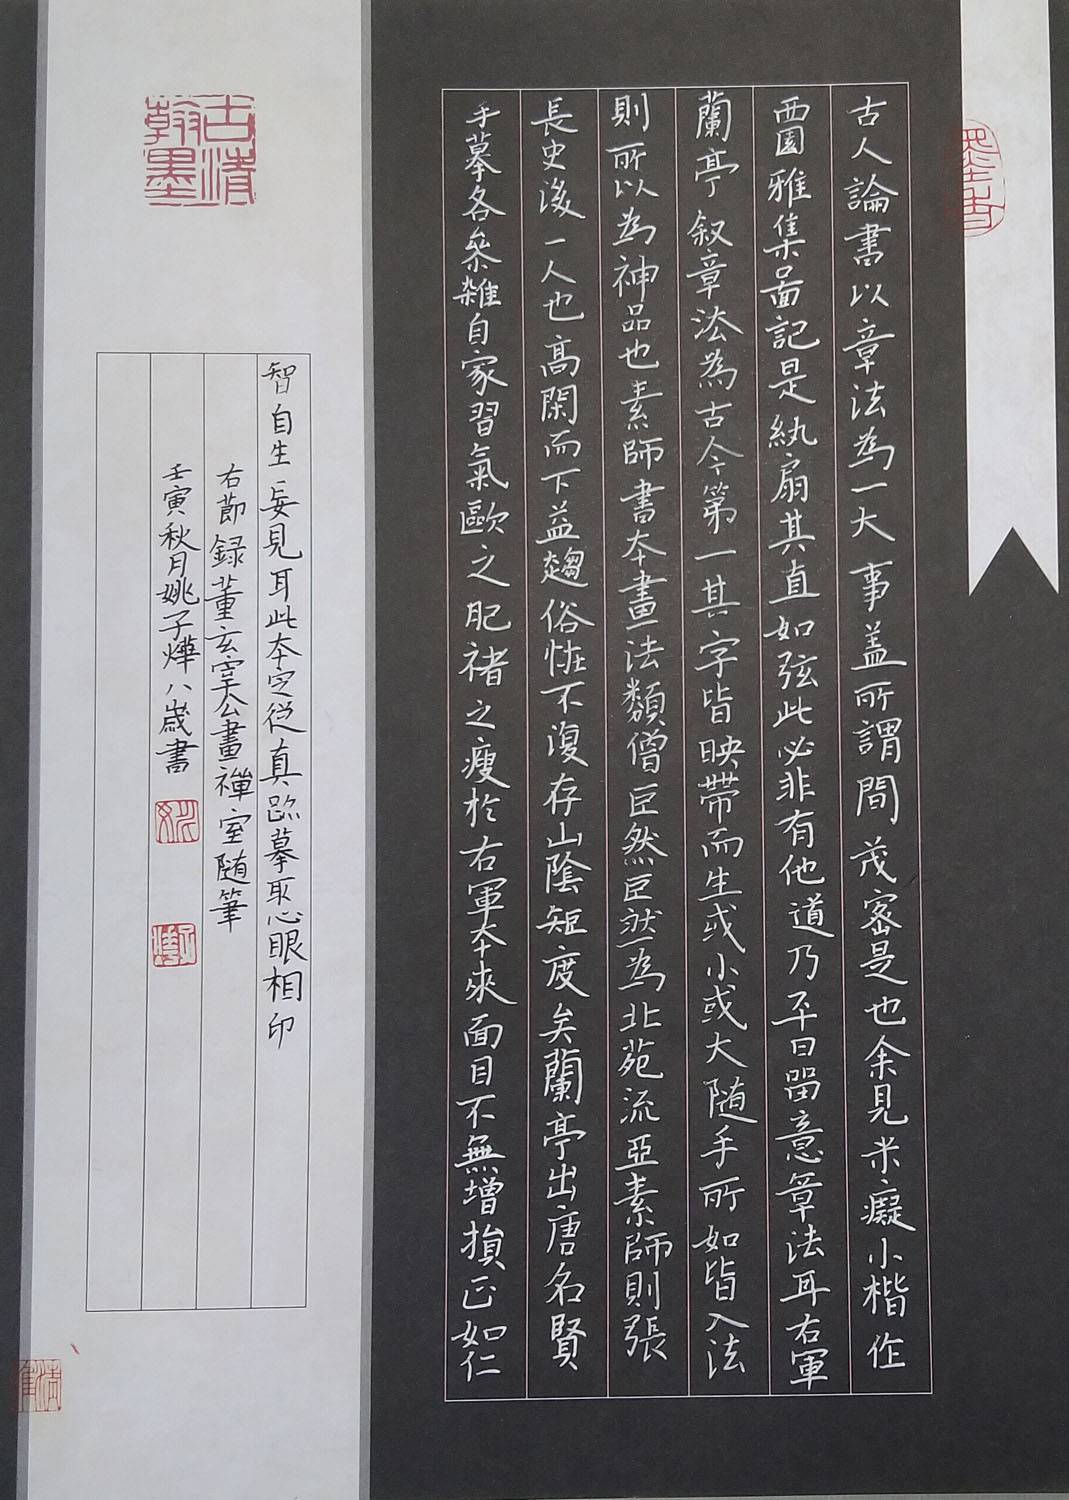 古人論書以章法為一大事蓋所謂間茂密是也余見米癡小楷作
西園雅集圖記是紈扇其直如弦此必非有他道乃平日留意章法耳右軍
蘭亭叙章法為古今第一其字皆映帶而生或小或大隨手所如皆入法
則所以為神品也素師書本畫法類僧巨然巨然為北苑流亞素師則張
長史後一人也高閑而下益趨俗怪不復存山陰矩度矣蘭亭出唐名賢
手摹各參雜自家習氣歐之肥褚之瘦於右軍本來面目不無增損正如仁
智自生妄見耳此本定從真跡摹取心眼相印
右節録董玄宰公畫禪室随筆
壬寅秋月姚子燁八歲書
古清翰墨
墨香
姚
子燁